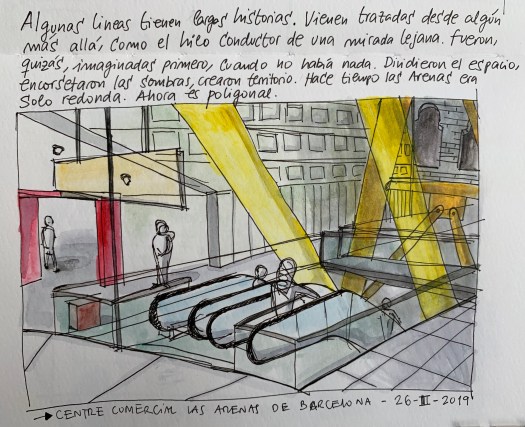 Algunas lineas tienen largas historias. Vienen trazadas desde algún
más allá, como el hilo conductor de una mirada lejana. fueron,
quizás, imaginadas primero, cuando no había nada. Dividieron el espacio,
encorsetaron las sombras, crearon territorio. Hace tiempo las Arenas era
solo redonda. Ahora es poligonal.
→ CENTRE COMERCIAL LAS ARENAS DE BARCELONA - 26-III-2019